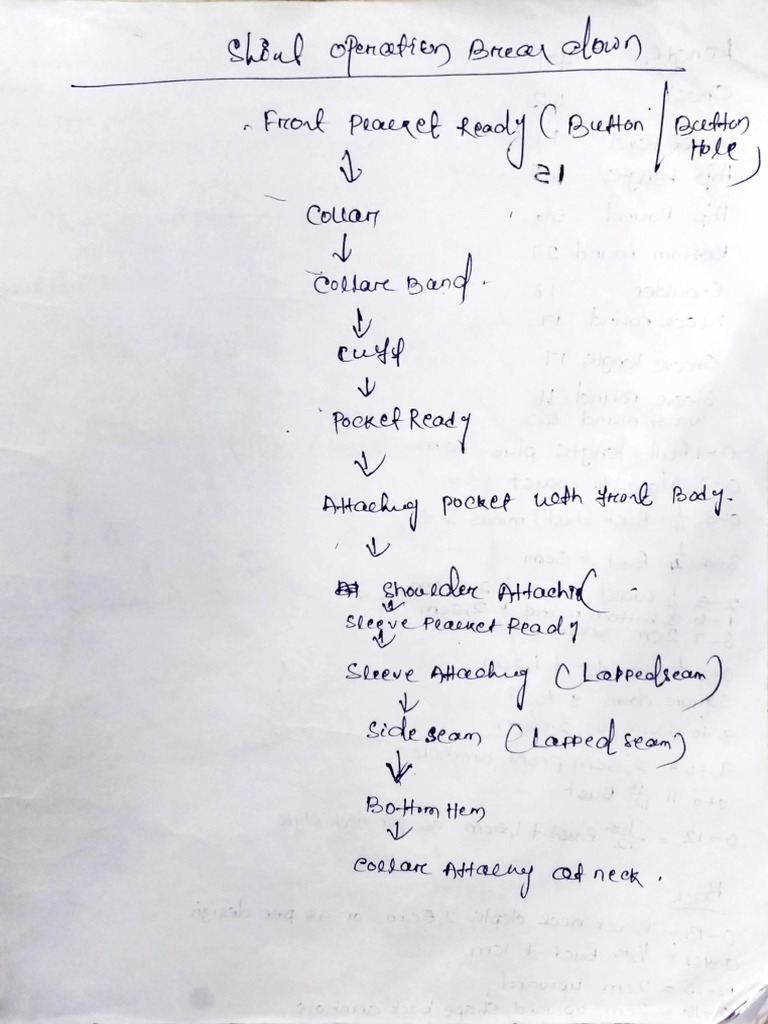 Shirt operation Break down
Front Placket Ready ( Button / Button
Hole )
Collar
Collare Band.
Cuff
Pocket Ready
Attaching pocket with front Body.
Shoulder Attachi(
Sleeve Placket Ready
Sleeve Attaching (Lapped seam)
Side seam (Lapped seam)
Bottom Hem
Collare Attaching at neck.